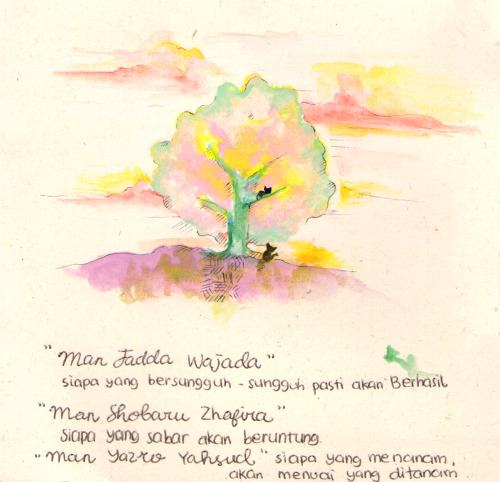 "Man Jadda Wajada"
siapa yang bersungguh-sungguh pasti akan Berhasil
"Man Shobaru Zhafira"
siapa yang sabar akan beruntung.
"Man Yazro Yahsud" siapa yang menanam,
akan menuai yang ditanam